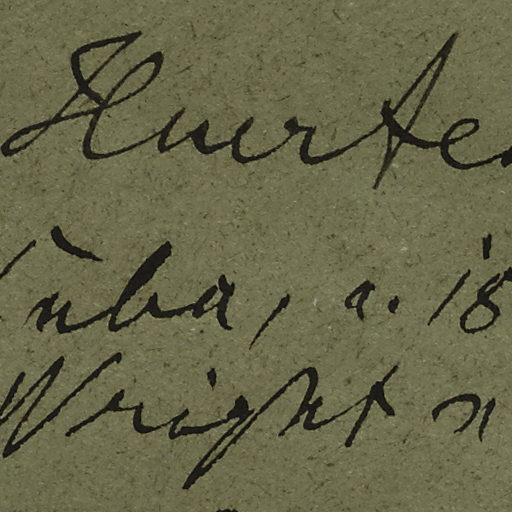 Huerte
Cuba, a. 18
Wright n